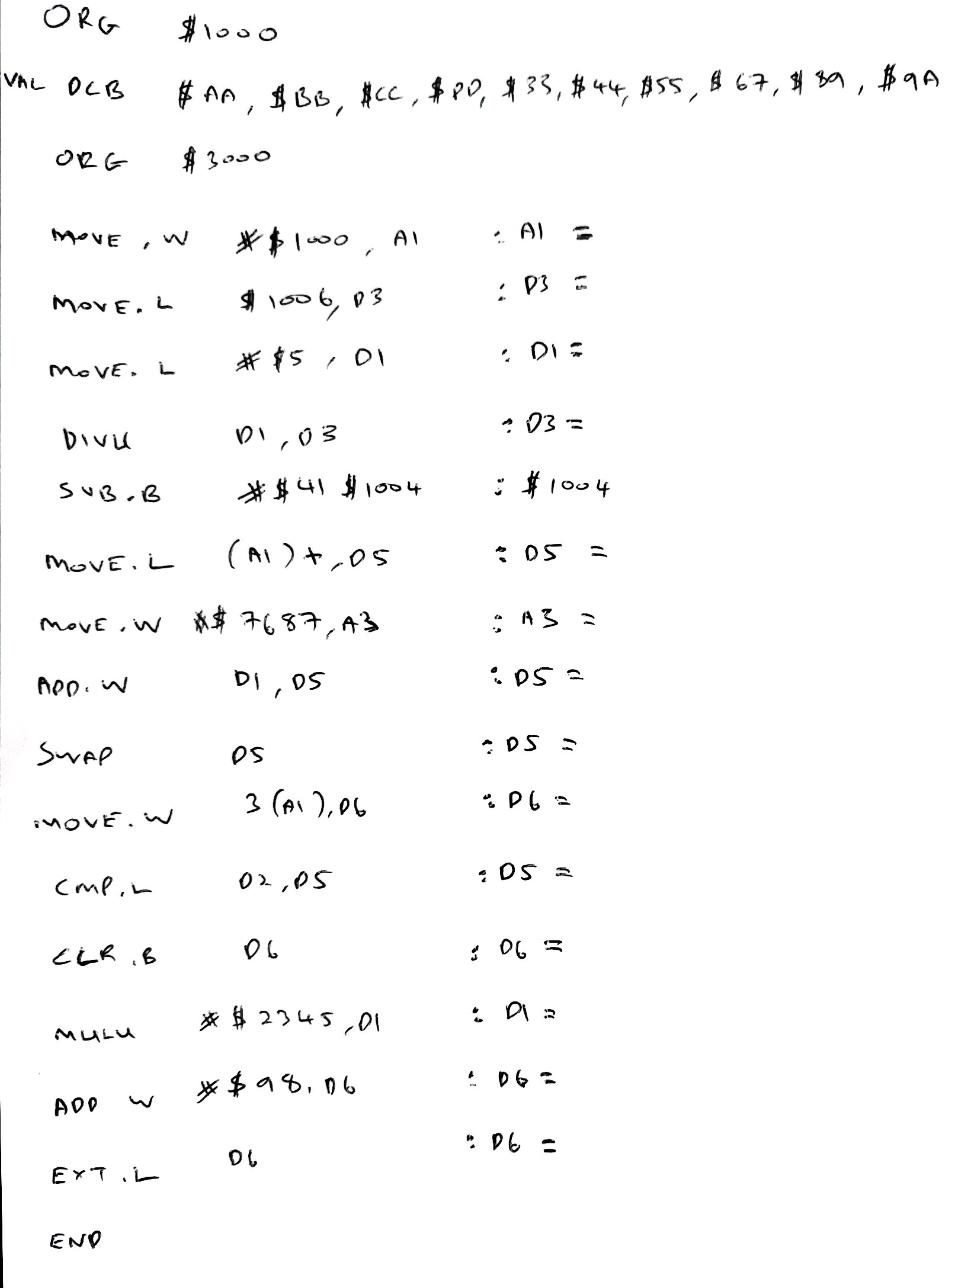 ORG $1000
VAL DCB $AA, $BB, $CC, $DD, $33, $44, $55, $67, $89, $9A
ORG $3000
MOVE.W #$1000, A1 ; A1 =
MOVE.L $1006, D3 ; D3 =
MOVE.L #$5, D1 ; D1 =
DIVU D1, D3 ; D3 =
SUB.B #$41 $1004 ; $1004
MOVE.L (A1)+, D5 ; D5 =
MOVE.W #$7687, A3 ; A3 =
ADD.W D1, D5 ; D5 =
SWAP D5 ; D5 =
MOVE.W 3(A1), D6 ; D6 =
CMP.L D2, D5 ; D5 =
CLR.B D6 ; D6 =
MULU #$2345, D1 ; D1 =
ADD W #$98, D6 ; D6 =
EXT.L D6 ; D6 =
END